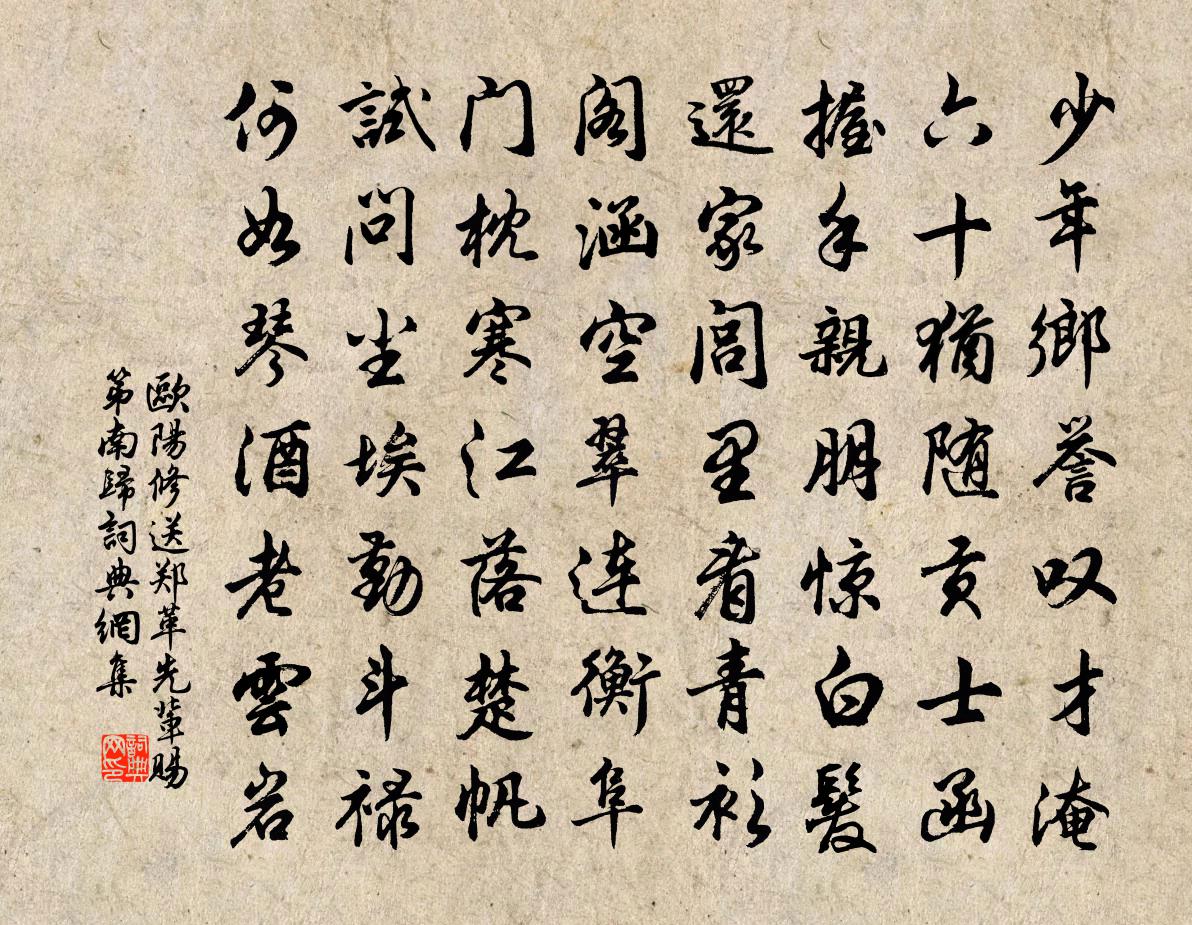 少年鄉譽叹才淹
六十猶随贡士函
握手親朋惊白髮
還家閭里看青衫
阁涵空翠连衡阜
门枕寒江落楚帆
試问尘埃勤斗禄
何如琴酒老雲岩
歐陽修送郑革先輩賜
第南歸詞典網集
詞典
网印